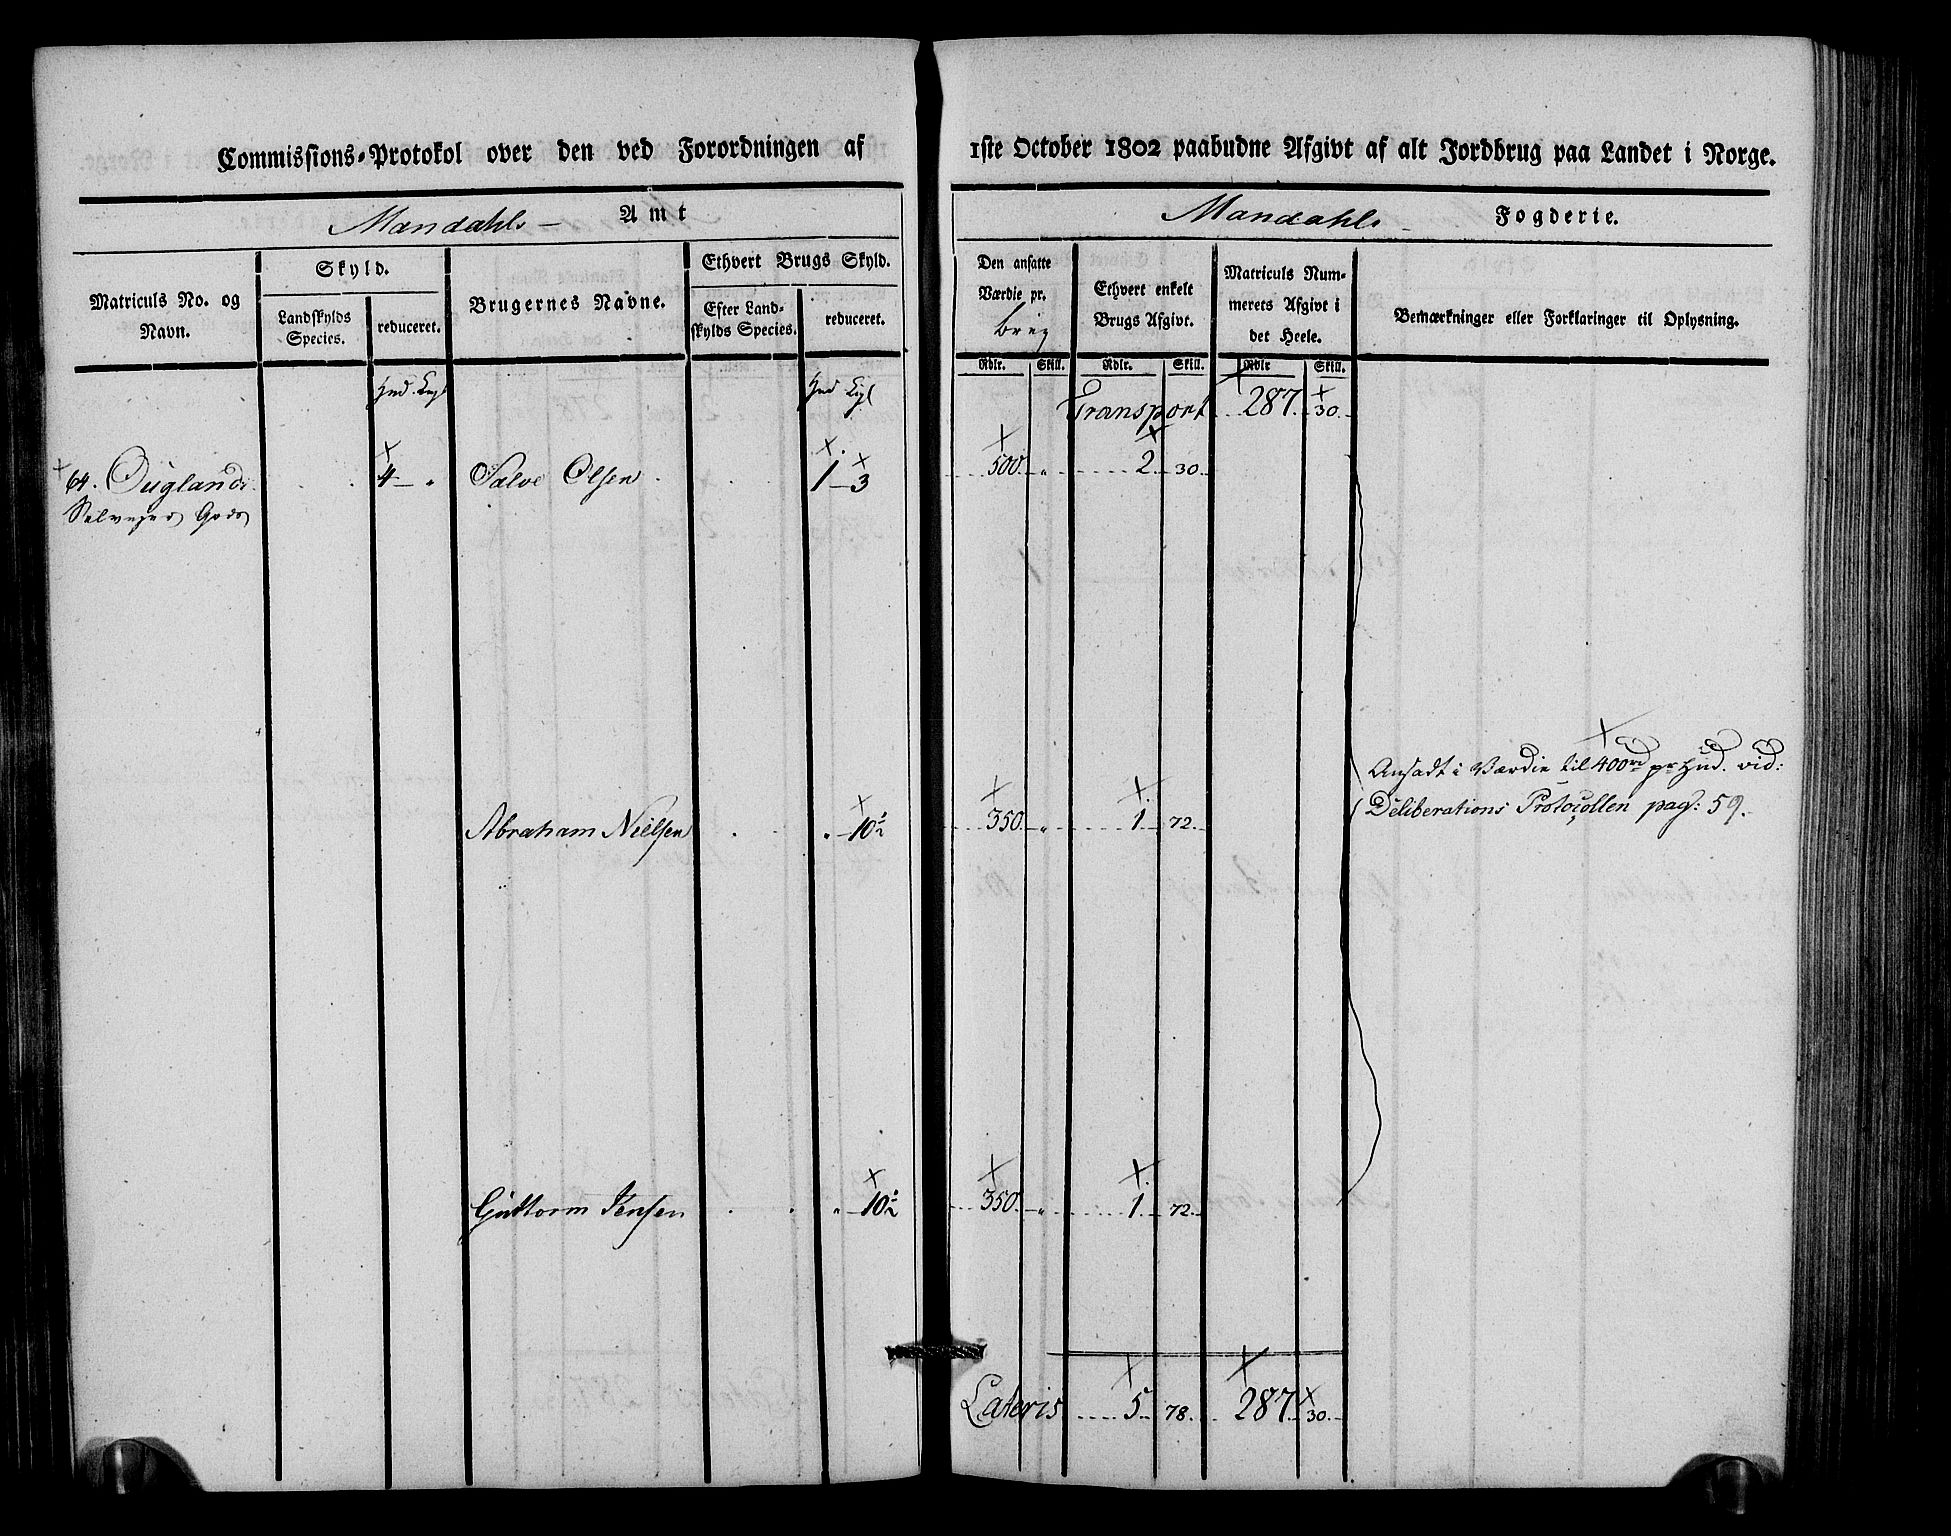 Commissions-Protokol over den ved Forordningen af 1ste October 1802 paabudne Afgivt af alt Jordbrug paa Landet i Norge.
Mandahls Amt
Mandahls Fogderie.
Matriculs No. og Navn.
Skyld.
Landskylds Species.
reduceret.
Brugernes Navne.
Ethvert Brugs Skyld.
Efter Land-skylds Species.
reduceret.
Den ansatte Værdie pr. Brug
Ethvert enkelt Brugs Afgivt.
Matriculs Nummerets Afgivt i det Heele.
Bemærkninger eller Forklaringer til Oplysning.
Rdlr. Skill. Rdlr. Skill. Rdlr Skill.
Hud. Hud
Transport 287. 30.
64. Øuglands 4 - „ Salve Olsen 1 - 3 500. „ 2. 30.
Selveyer Gods
Ansadt i Værdie til 400rd pr Hud. vid:
Deliberations Protocollen pag: 59.
Abraham Nielsen „ - 10½ 350. „ 1. 72.
Guttorm Jensen „ - 10½ 350. „ 1. 72.
Lateris 5. 78. 287. 30.